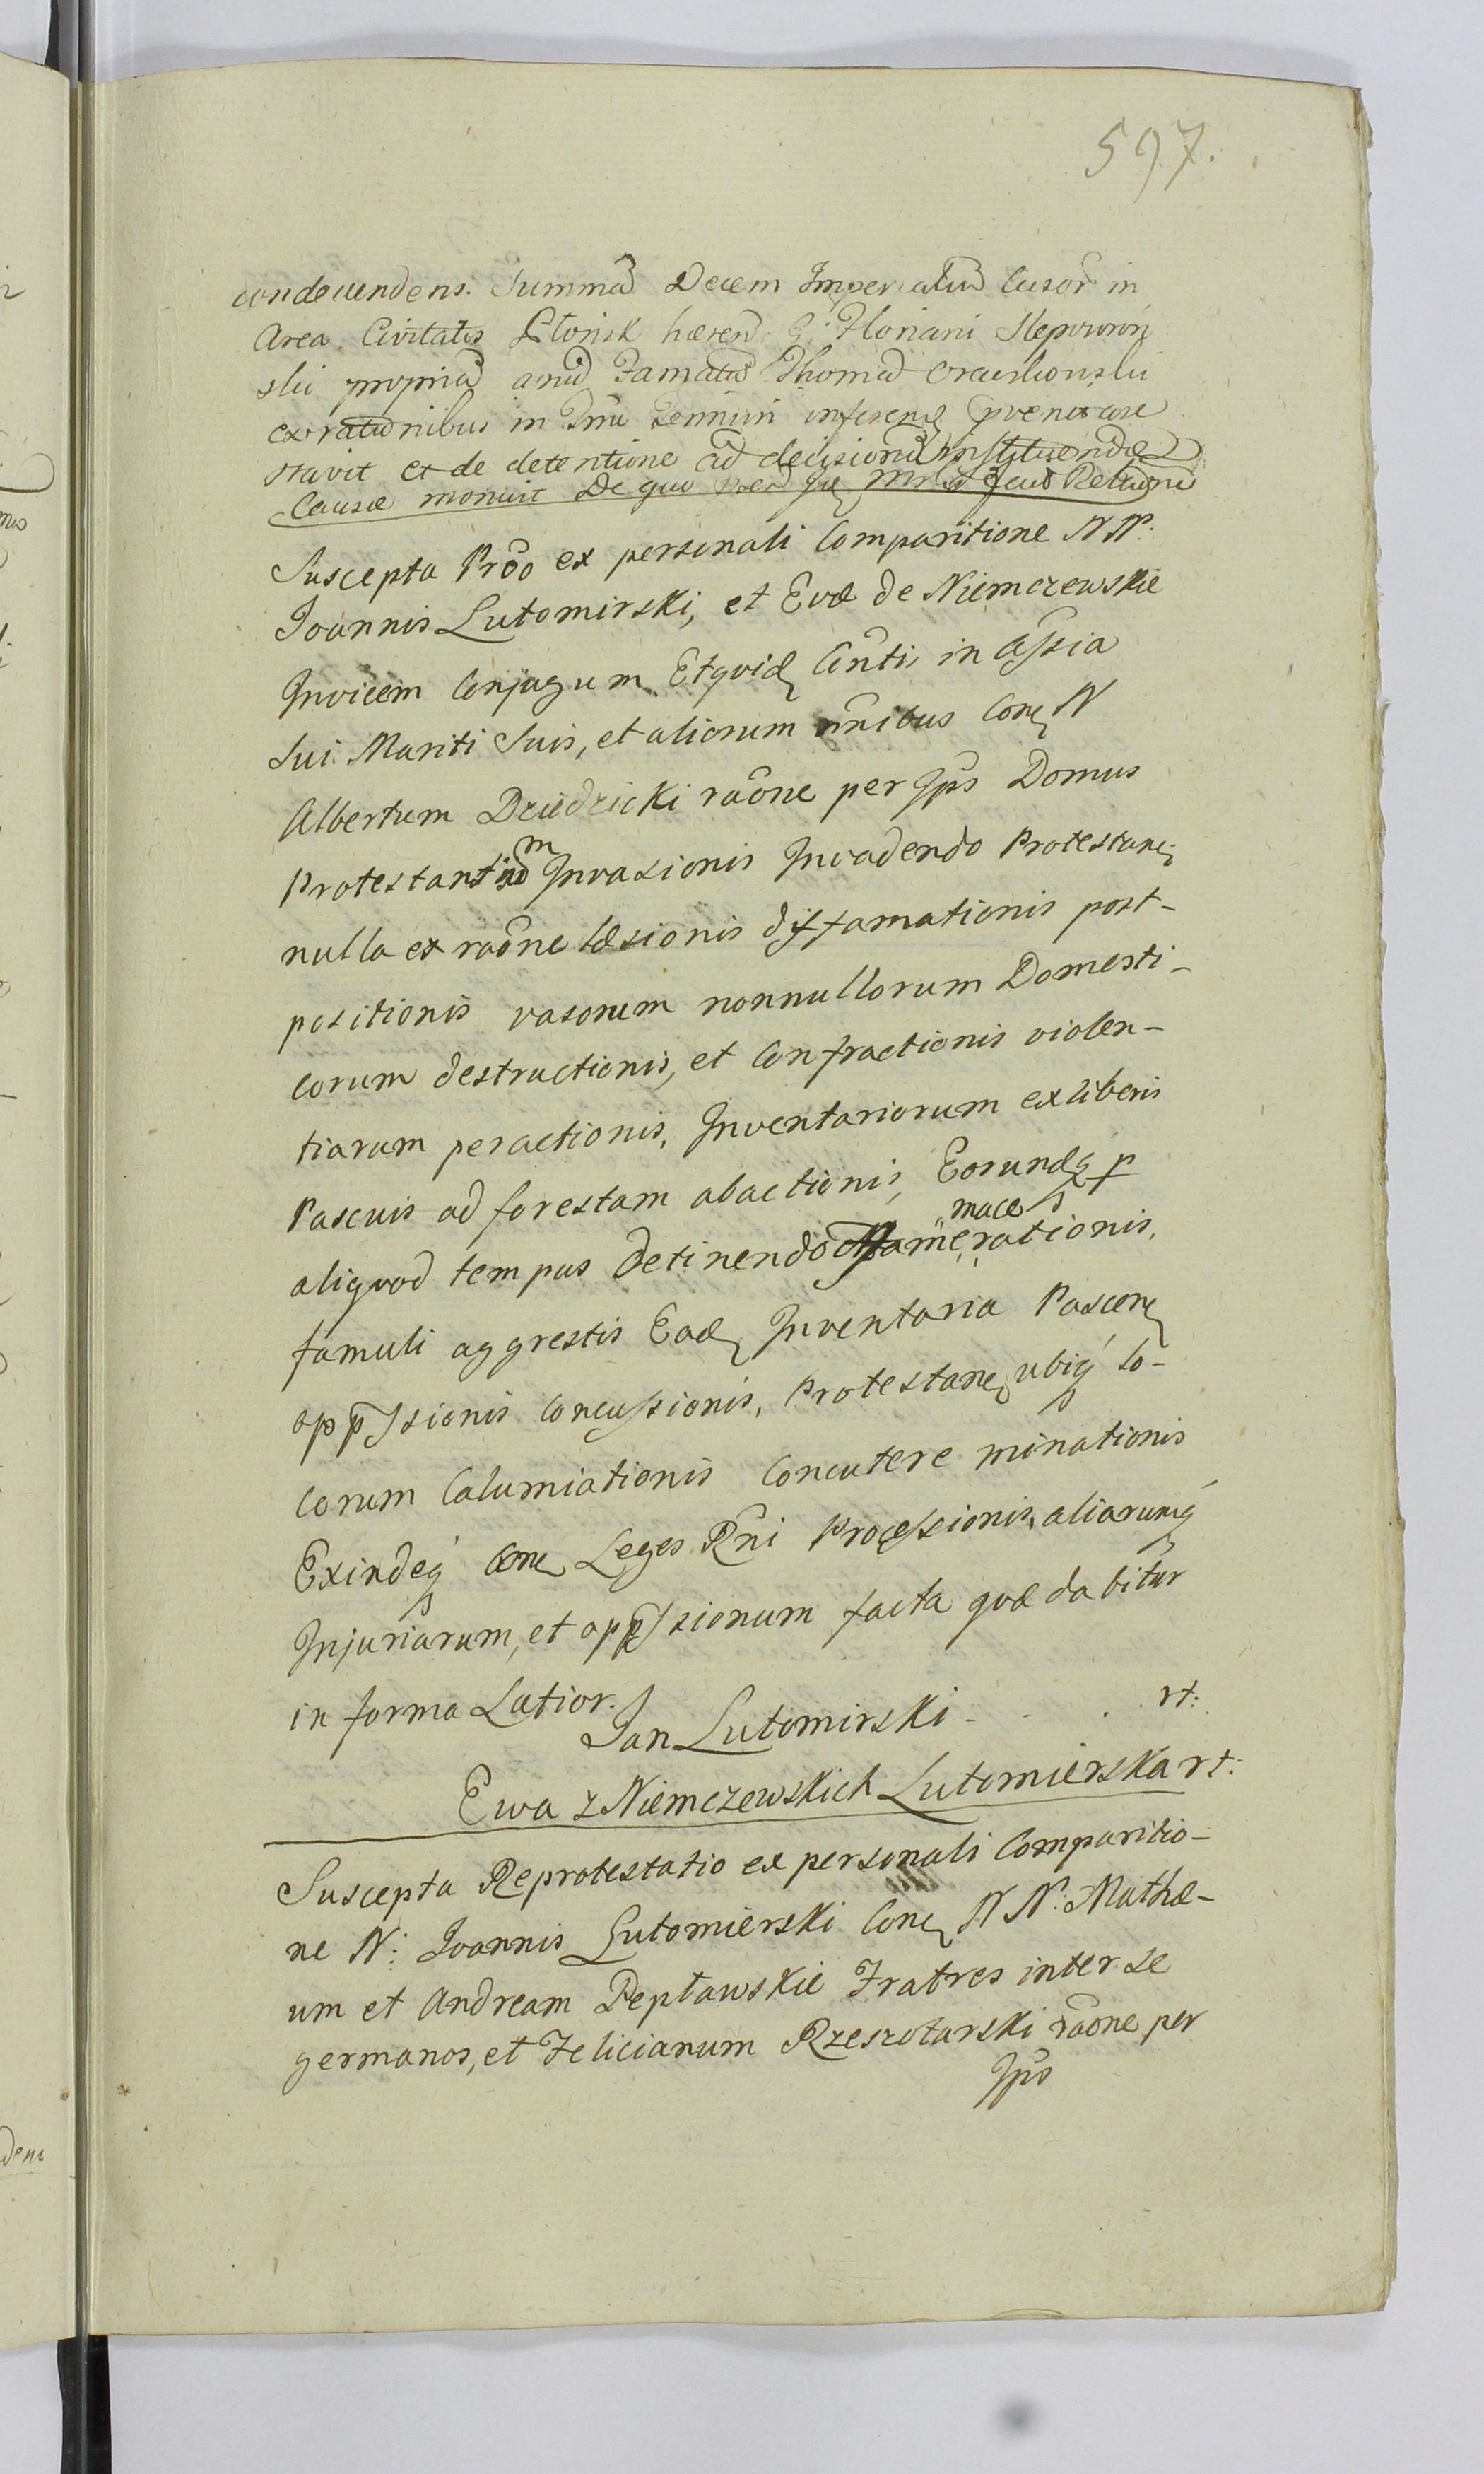 597.
condecendens. Summã Decem Imperialiũ Cusor̃ in
Area Civitatis Płonsk hæren̄ G: Floriani
ski propriã apud Famatũ Thomã
ex rationibus in Tmo Termini inferenȝ
stavit et de detentione ad decisionẽ instituendæ
Causæ monuit De quo Relationẽ
Suscepta Prõo ex personali Comparitione N N:
Joannis Lutomirski, et Evæ de Niemczewskie
Invicem Conjugum Etqvidȝ Cõnti in assia
Sui Mariti Suis, et aliorum nõnibus Conȝ N
Albertum Dziedzicki raõne per Ips̃ Domus
Protestantium Invasionis Invadendo Protestanȝ
nulla ex raõne læsionis diffamationis post-
positionis vasorum nonnullorum Domesti-
corum destructionis, et Confractionis violen-
tiarum peractionis, Inventariorum ex liberis
Pascuis ad forestam abactionis, Eorundȝ p
mace
aliqvod tempus detinendo rationis,
famuli aggrestis Eadȝ Inventaria Pascenȝ
opp̃ssionis Concussionis, Protestanȝ ubiq́ lo-
corum Calumiationis Concutere minationis
Exindeq́ Conȝ Leges Rñi Processionis, aliarumq́
Injuriarum, et opp̃ssionum facta qvæ dabitur
in forma Latior.
Jan Lutomirski - . . rt:
Ewa z Niemczewskich Lutomierska rt:
Suscepta Reprotestatio ex personali Comparitio-
ne N: Joannis Lutomierski Conȝ N N: Mathæ-
um et Andream Pepławskie Fratres inter se
germanos, et Felicianum Rzeszotarski raõne per
Ips̃